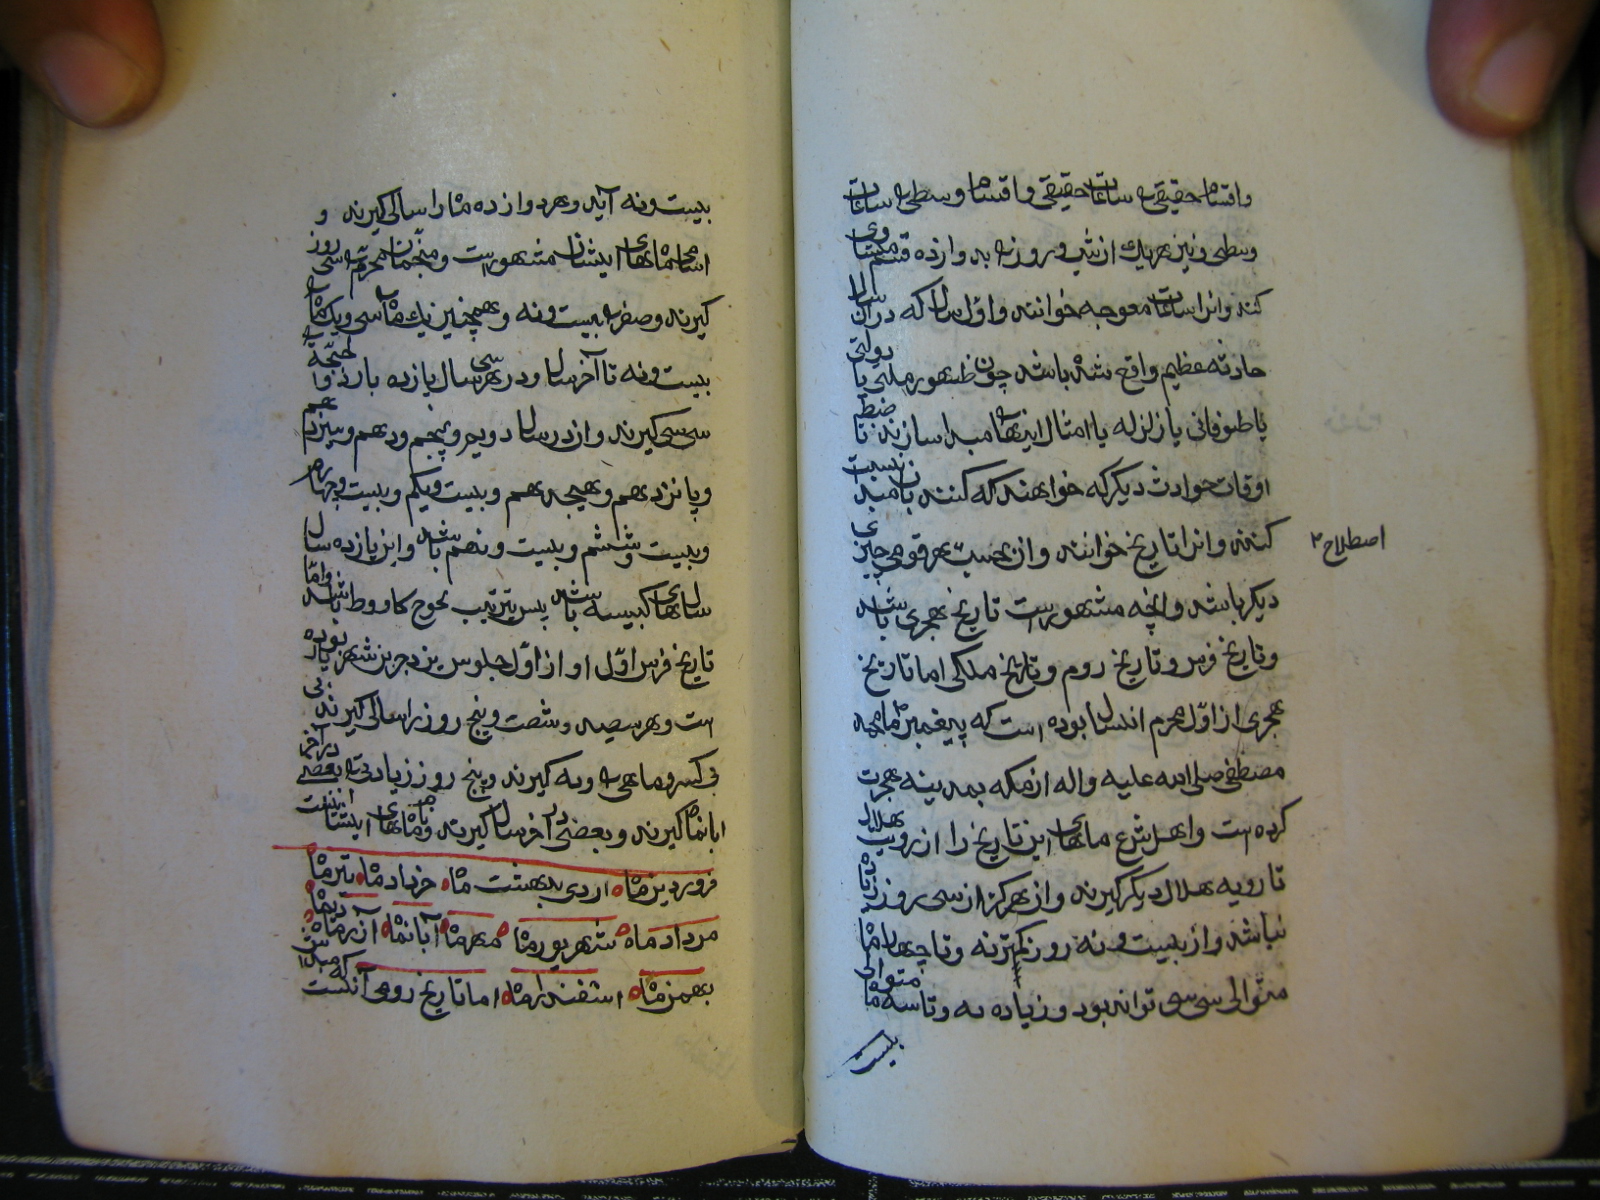 واقسام حقیقی را ساعات حقیقی واقسام وسطی را ساعات
وسطی ونیز هریک از شب و روز را به دوازده قسم متساوی
کنند وانرا ساعات معوجه خوانند واول سال که دران سال
حادثه عظیم واقع شده باشد چون ظهور ملتی یا دولتی
یا طوفانی یا زلزله یا امثال اینها مبدا سازند تا ضبط
اوقات حوادث دیگر که خواهند که کنند بان مبدا نسبت
کنند وانرا تاریخ خوانند وان بحسب هر قومی چیزی
اصطلاح ۲
دیگر باشد وانچه مشهورست تاریخ هجری باشد
وتاریخ فرس وتاریخ روم وتاریخ ملکی اما تاریخ
هجری از اول محرم انسال بوده است که پیغمبر ما محمد
مصطفی صلی الله علیه واله از مکه بمدینه هجرت
کرده است واهل شرع ماههای این تاریخ را از رویت هلال
تا رویه هلال دیگر گیرند وان هرگز از سی روز زیاده
نباشد واز بیست ونه روز کمتر نه وتا چهار ماه
متوالی سی سی تواند بود و زیاده نه وتا سه ماه متوالی
بیست
بیست ونه آید وهر دوازده ماه را سالی گیرند و
اسامی ماههای ایشان مشهورست ومنجمان محرم را سی روز
گیرند وصفر را بیست ونه و همچنین یک ماه سی ویک ماه
بیست ونه تا آخر سال ودر هر سی سال یازده بار ذوالحجه را
سی سی گیرند وان در سال دویم وپنجم ودهم وسیزدهم
وپانزدهم وهیجدهم وبیست ویکم وبیست وچهارم
وبیست وششم وبیست ونهم باشد واین یازده سال
سالهای کبیسه باشد پس بترتیب بهزیجهح کادوط باشد واما
تاریخ فرس اول او از اول جلوس یزدجرد بن شهریار بوده
است وهر سیصد وشصت وپنج روز را سالی گیرند بی
بی کسر وماهی را سی گیرند وپنج روز زیادتی را بعضی در آخر
ابانماه گیرند وبعضی در آخر سال گیرند ونام ماههای ایشان اینست
فروردین ماه اردی بهشت ماه خرداد ماه تیر ماه
مرداد ماه شهریور ماه مهر ماه آبان ماه آذر ماه دی ماه
بهمن ماه اسفندارماه اما تاریخ رومی آنست که مبداش